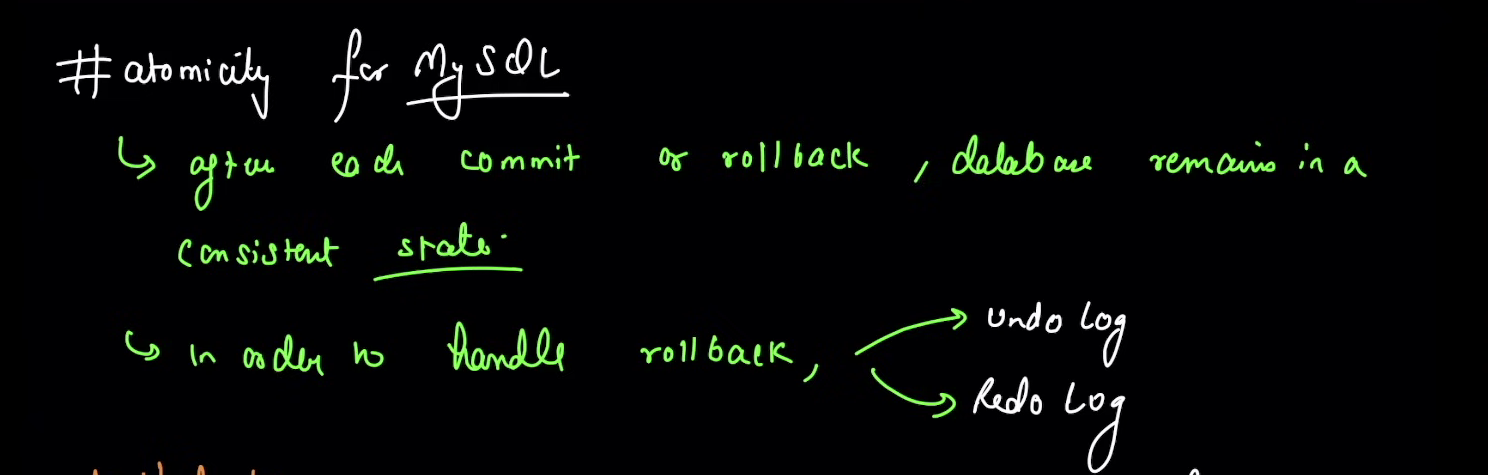 # atomicity for MySQL
↳ after each commit or rollback, database remains in a
consistent state.
↳ in order to handle rollback, → Undo Log
→ Redo Log